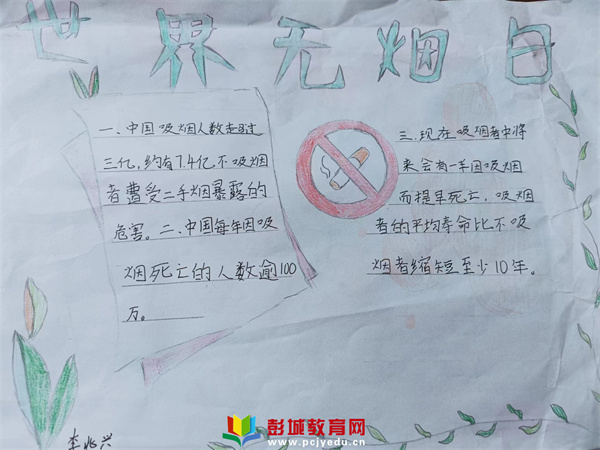 世界无烟日
一、中国吸烟人数超过
三亿,约有7.4亿不吸烟
者遭受二手烟暴露的
危害。二、中国每年因吸
烟死亡的人数逾100
万。
三、现在吸烟者中将
来会有一半因吸烟
而提早死亡,吸烟
者的平均寿命比不吸
烟者缩短至少10年。
李兆兴
彭城教育网
www.pcjyedu.cn